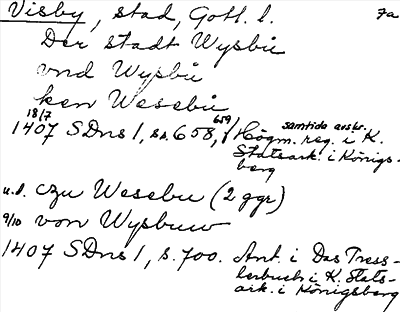 Visby, stad, Gotl. l. 7a
Der stadt Wysbu
vnd Wysbu
ken Wesebu
18/7 1407 SDns 1, s. 658, 659, Högm. reg. i K. samtida avskr.
Statsark. i Königs-
berg
u.d. czu Wesebu (2 ggr)
9/10 von Wysbuw
1407 SDns 1, s. 700. Ant. i Das Tress-
lerbuch i K. Stats-
ark. i Königsberg